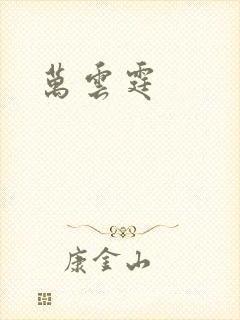 萬雲霆
康金山